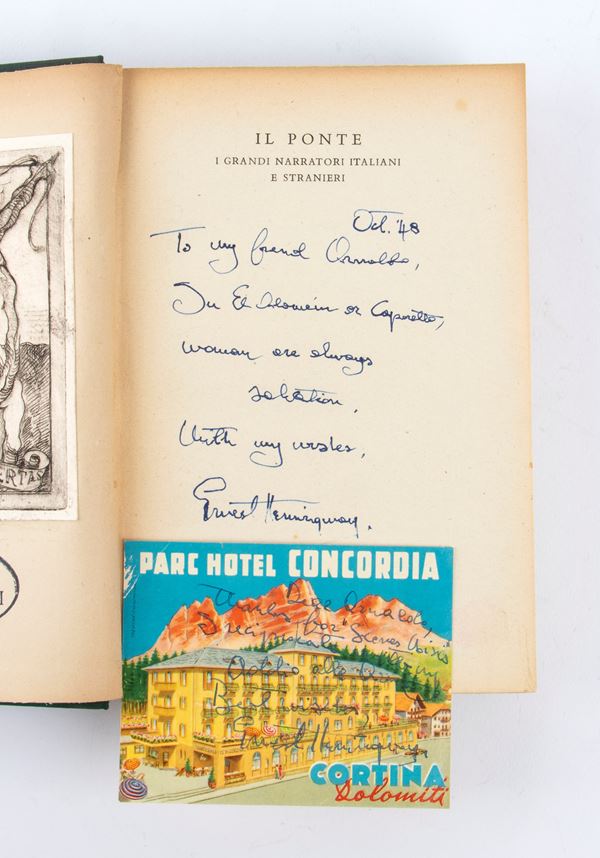 IL PONTE
I GRANDI NARRATORI ITALIANI
E STRANIERI
Oct. '48
To my friend Arnaldo,
In El Alamein or Caporetto,
woman are always
salvation.
With my wishes,
Ernest Hemingway.
ERTAS
I
PARC HOTEL CONCORDIA
Dear Arnaldo,
Thanks for
Ernest Hemingway
CORTINA
Dolomiti